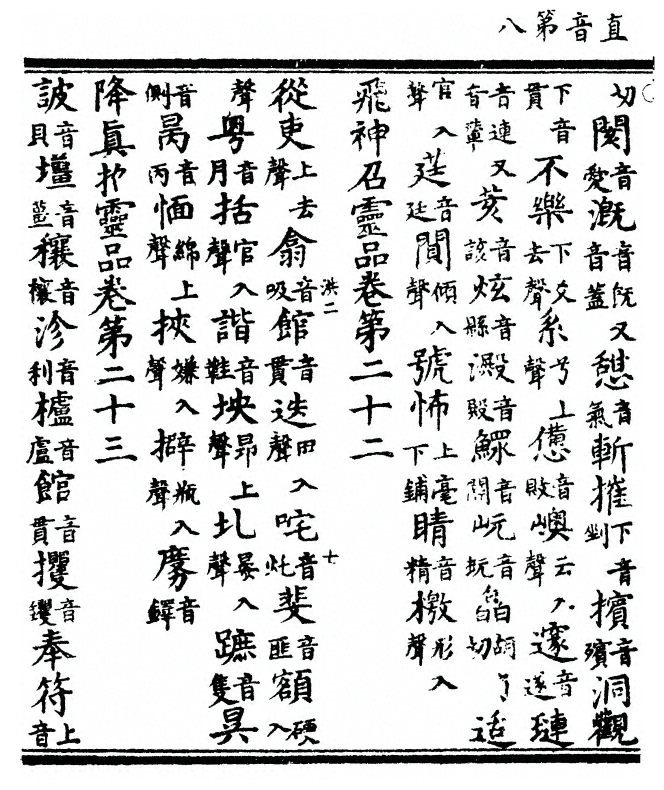 直音第八
切闋音愛溉音旣又音蓋憇音氣斬摧下音剉擯音殯洞觀
下音貫不樂下文去聲系兮上聲憊音敗嶼云入聲邃音遂璉
音連又音輦荄音該炫音縣澱音殿鰥音關岏音玩胡了切适
官入聲莛音廷閴傾入聲號怖上毫下鋪睛音精檄形入聲
飛神召靈品卷第二十二
從吏上去聲翕音吸館音貫迭田入聲咤音圫斐音匪額硬入
聲粤音月括官入聲諧音鞋坱昴上聲圠晏入聲蹠音隻昊
音側昺音丙愐綿上聲挾嫌入聲擗瓶入聲鐸音
降眞护靈品卷第二十三
詖音貝壇音穰音穰沴音利櫨音盧館音貫攫音钁奉符上音
洪二
十